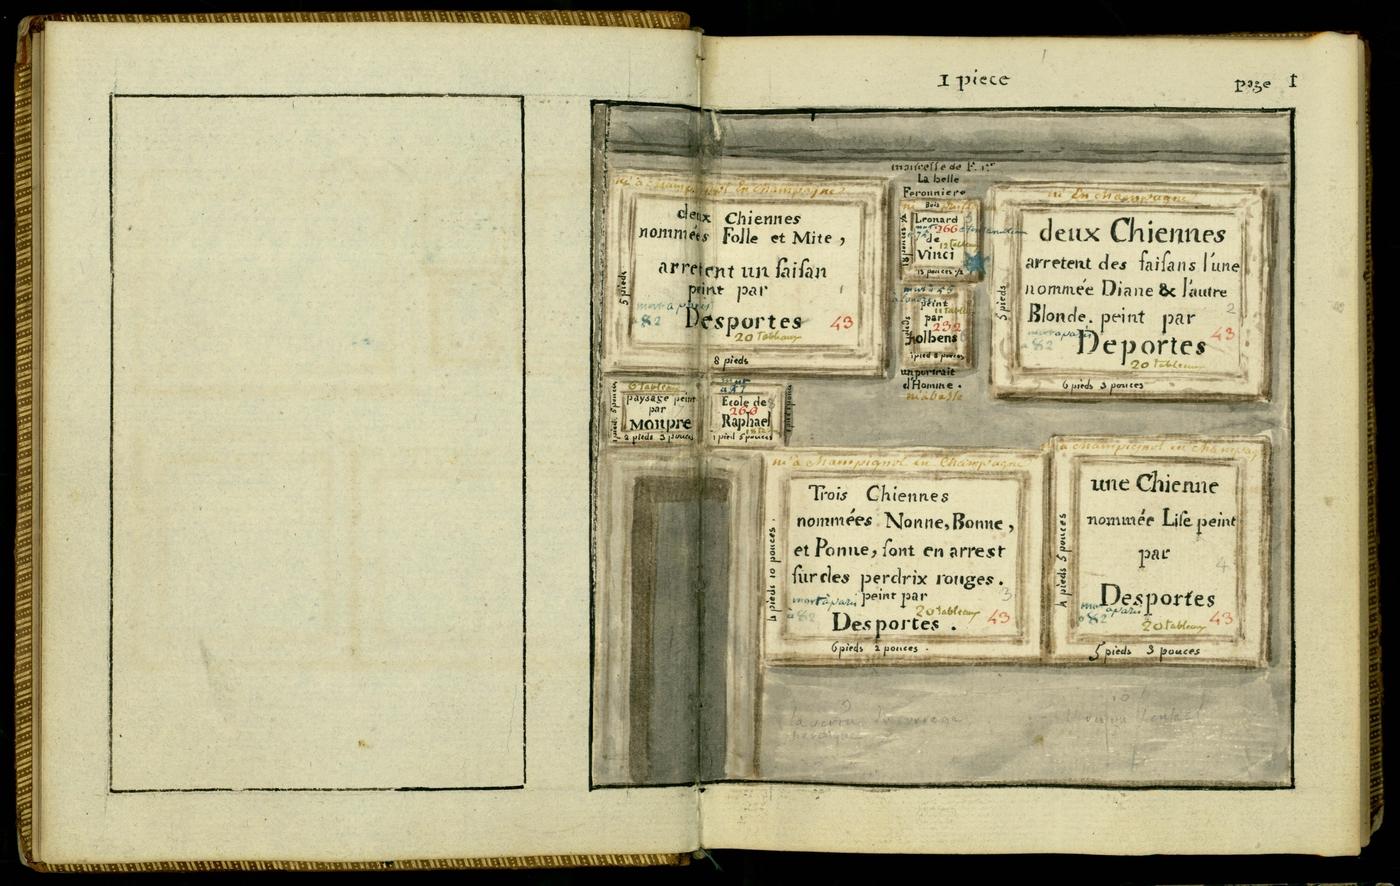 1 piece
page 1
né à Champignol en Champagne
deux Chiennes
nommées Folle et Mite,
arretent un faisan
peint par
mort à paris
à 82
Desportes
43
20 tableaux
5 pieds
8 pieds
maitresse de F. 1er
La belle
Feronniere
Bois
Leonard
266
de
12 tableaux
Vinci
13 pouces ½
peint
par
232
holbens
1 pied 8 pouces
un portrait
d'Homme.
né à basle
né en champagne
deux Chiennes
arretent des faisans l'une
nommée Diane & l'autre
Blonde. peint par
2
mort à paris
à 82
Deportes
43
20 tableaux
5 pieds
6 pieds 3 pouces
6 tableaux
paysage peint
par
Monpre
2 pieds 3 pouces
Ecole de
Raphael
1 pied 5 pouces
né à Champignol en Champagne
Trois Chiennes
nommées Nonne, Bonne,
et Ponne, sont en arrest
sur des perdrix rouges.
peint par
3
mort à paris
à 82
20 tableaux
43
Desportes.
4 pieds 10 pouces.
6 pieds 2 pouces.
à Champignol en Champagne
une Chienne
nommée Lise peint
par
4
Desportes
mort à paris
à 82
20 tableaux
43
4 pieds 5 pouces
5 pieds 3 pouces